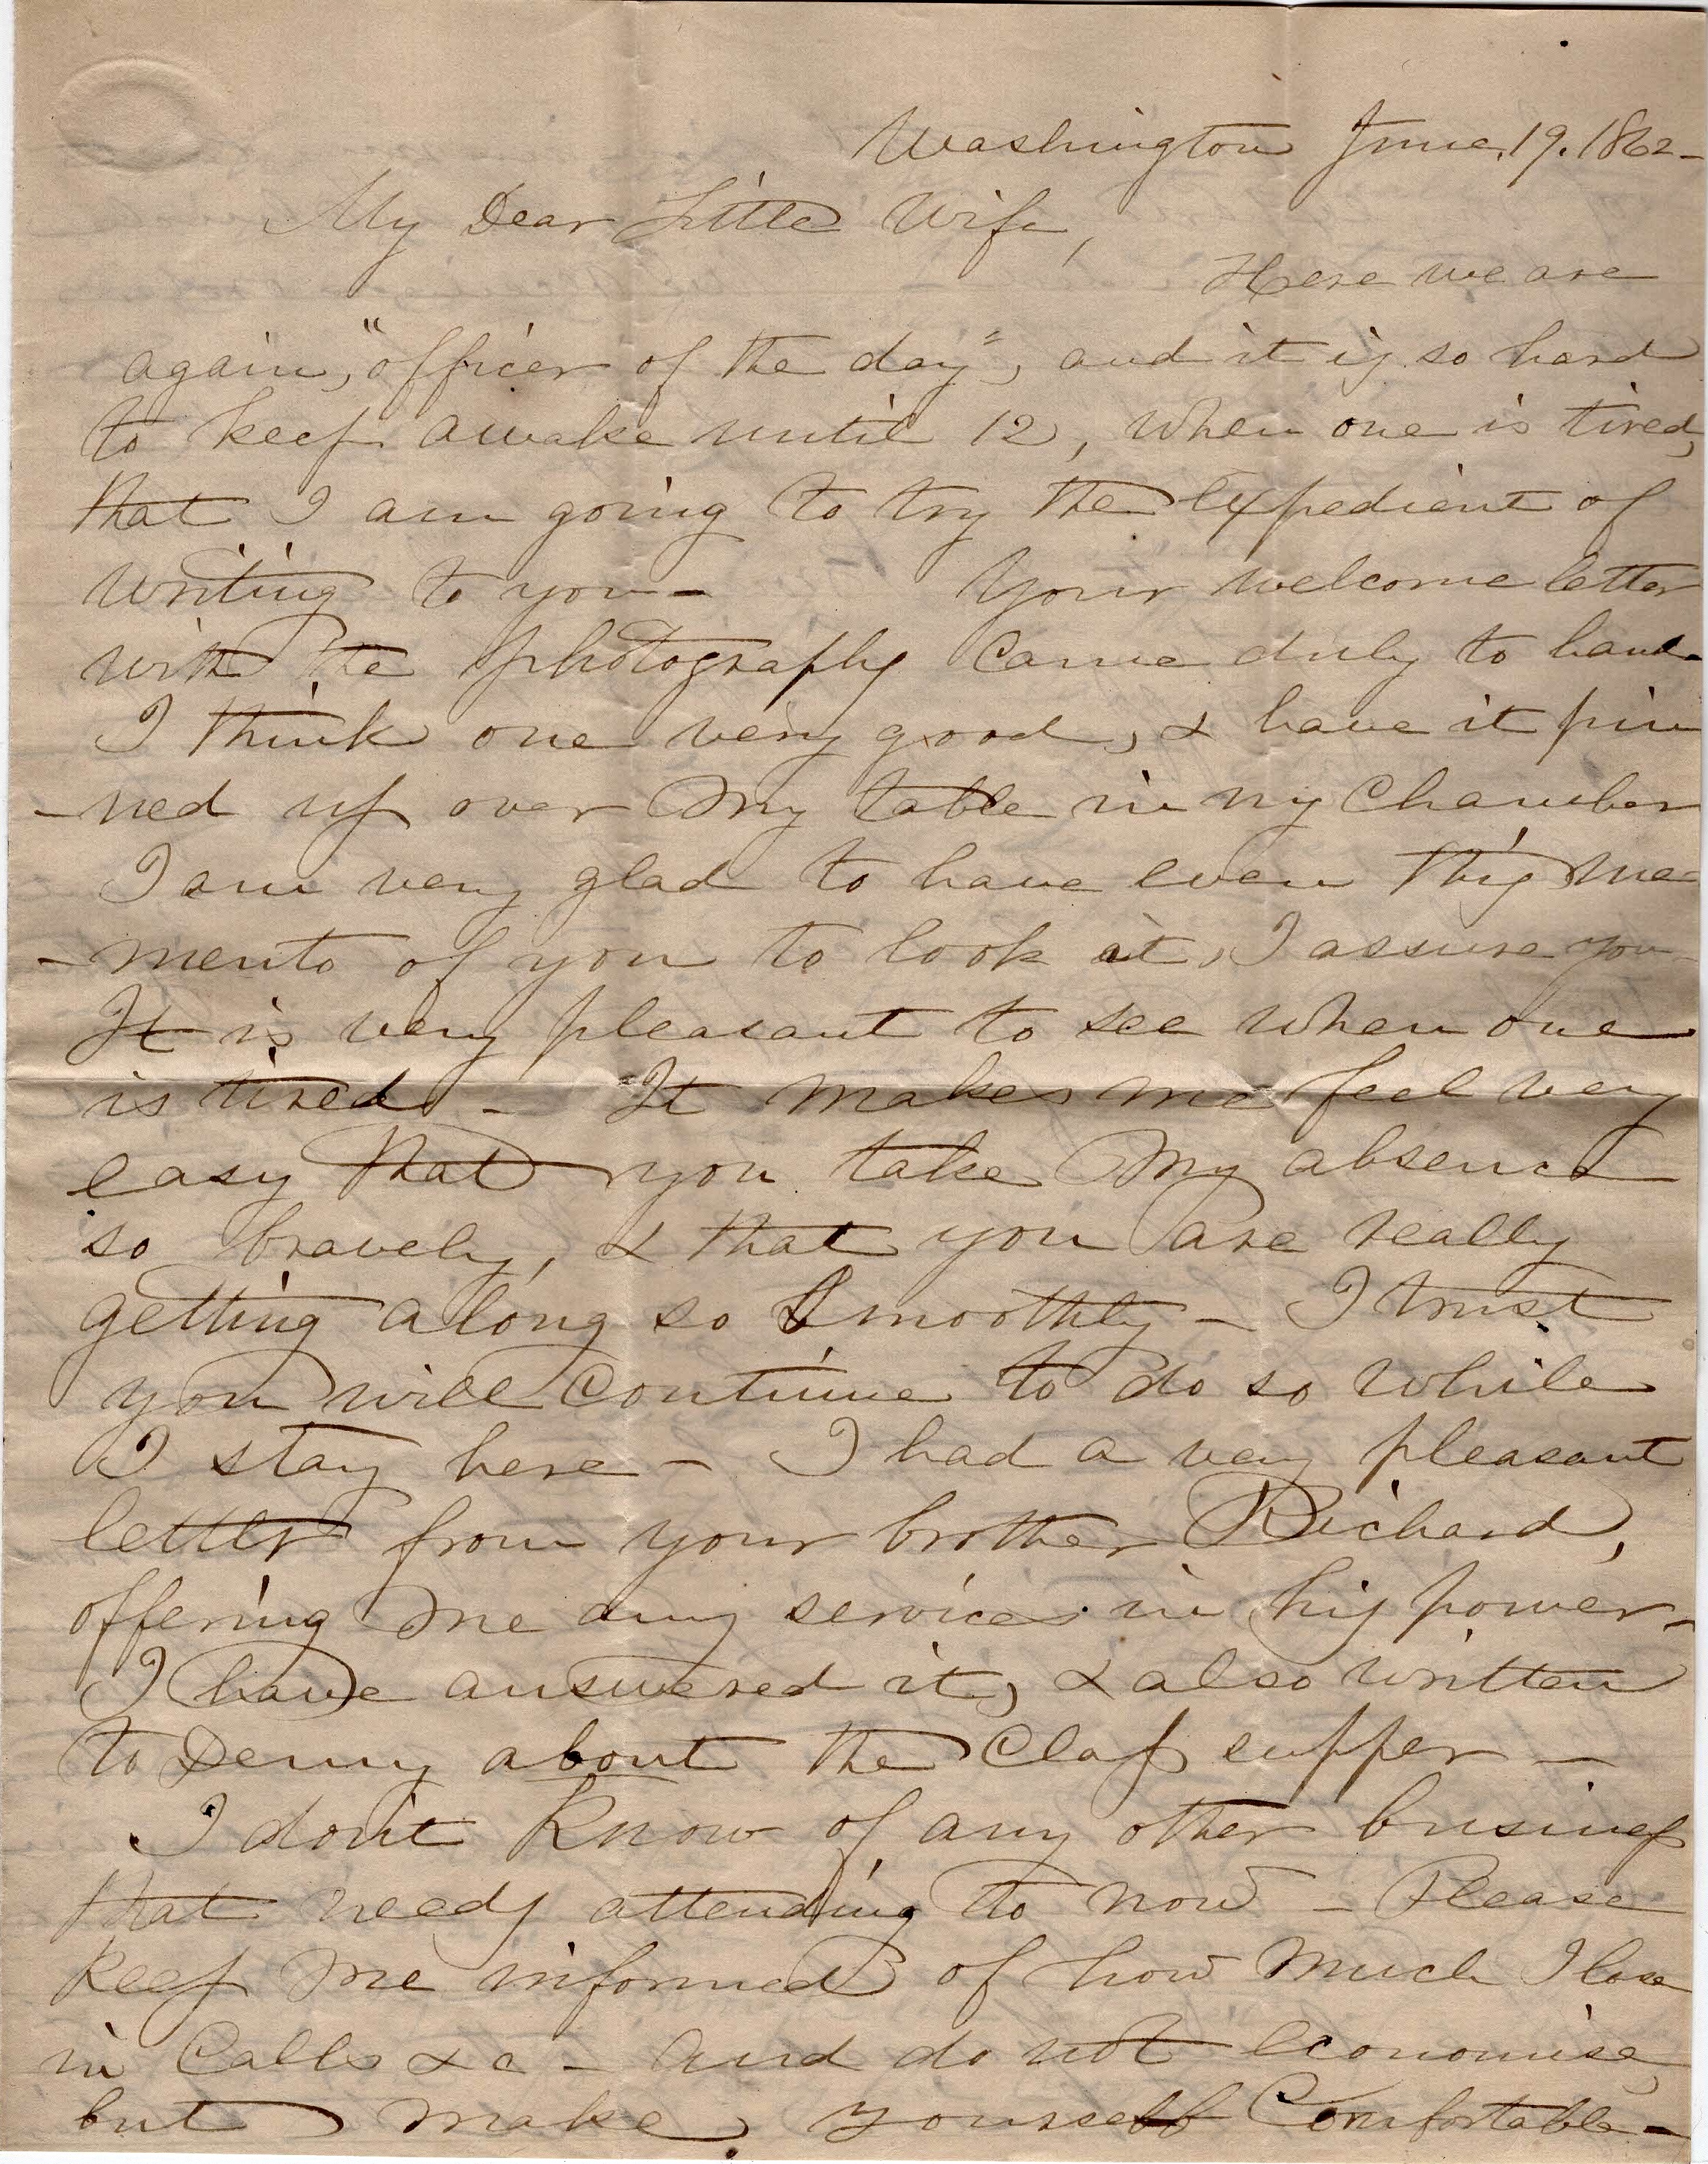 Washington June. 19. 1862-
My Dear Little Wife,
Here we are
again, "officer of the day", and it is so hard
to keep awake until 12, when one is tired,
that I am going to try the expedient of
writing to you - Your welcome letter
with the photographs came duly to hand-
I think one very good, & have it pin
-ned up over my table in my Chamber
I am very glad to have even this me-
-mento of you to look at, I assure you-
It is very pleasant to see when one
is tired - It makes me feel very
easy that you take my absence
so bravely, & that you are really
getting along so Smoothly - I trust
you will continue to do so while
I stay here - I had a very pleasant
letter from your brother Richard,
offering me any services in his power-
I have answered it, & also written
to Denny about the Class supper -
I don't know of any other business
that needs attending to now - Please
keep me informed of how much I lose
in Calls &c - And do not economise,
but make yourself Comfortable -